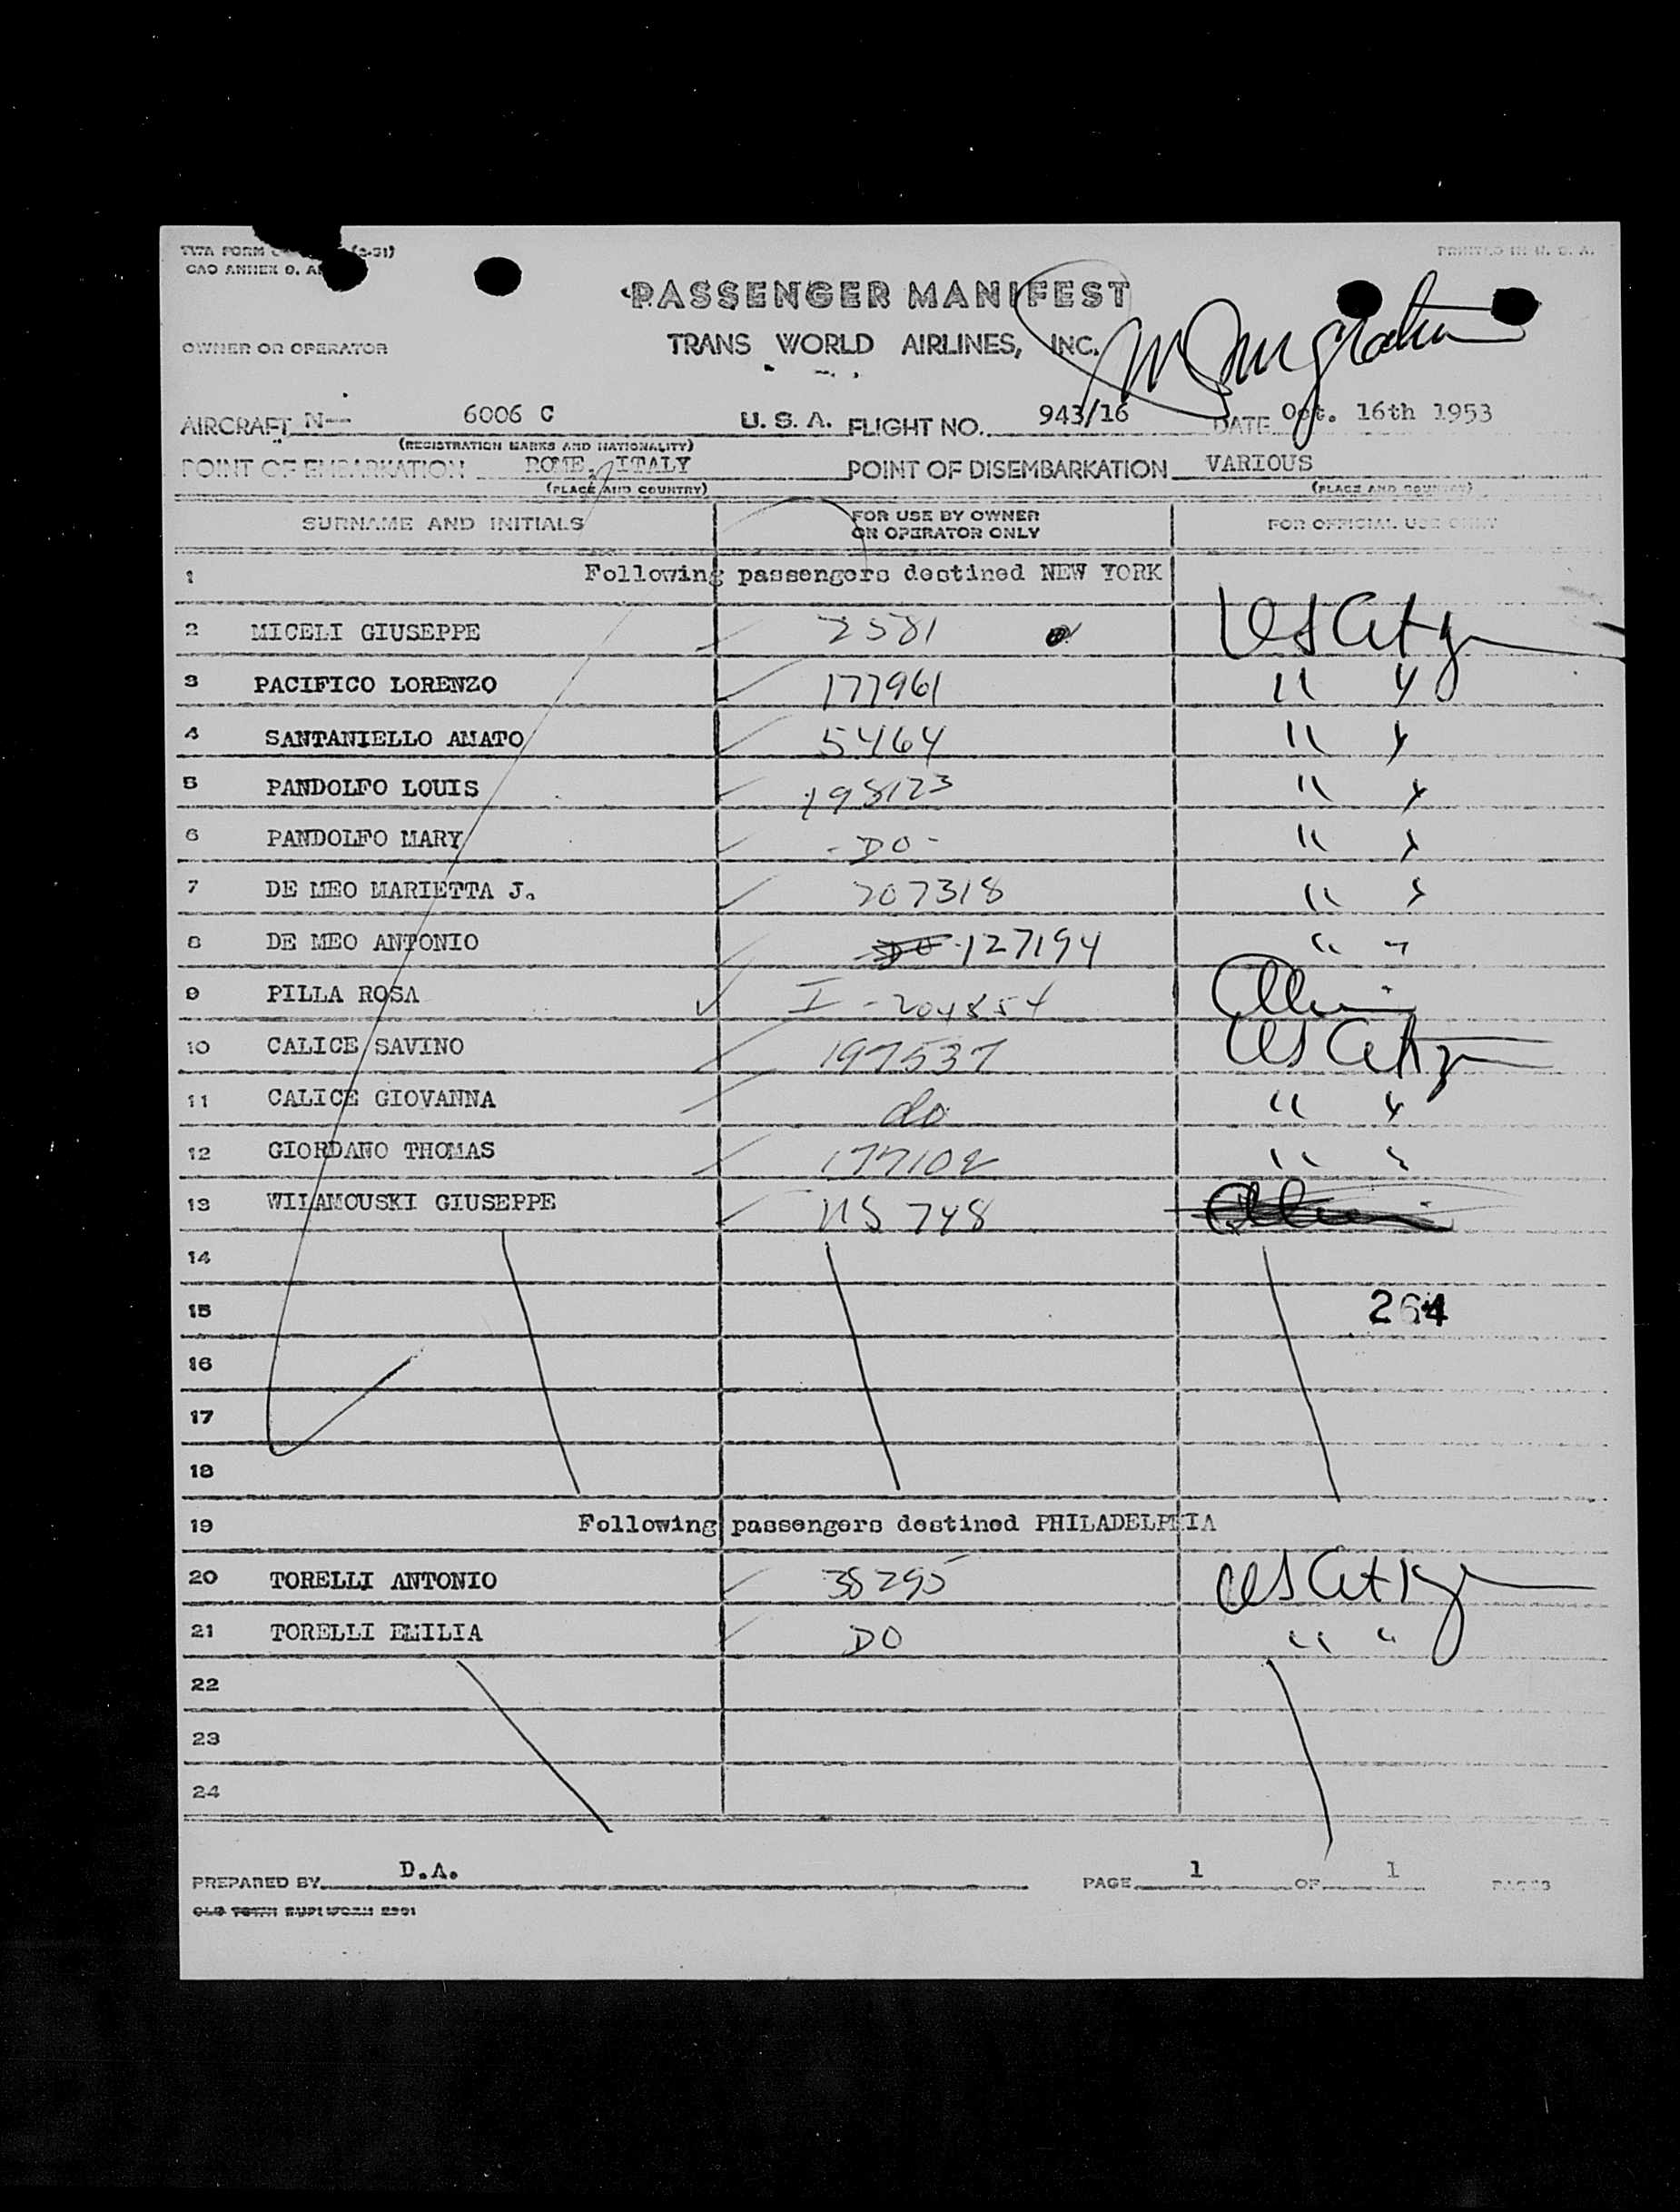 TWA FORM (2-51)
CAO ANNEX 9, PRINTED IN U. S. A.
PASSENGER MANIFEST
OWNER OR OPERATOR TRANS WORLD AIRLINES, INC.
Immigration
AIRCRAFT N-- 6006 C U. S. A. FLIGHT NO. 943/16 DATE Oct. 16th 1953
(REGISTRATION MARKS AND NATIONALITY)
POINT OF EMBARKATION ROME, ITALY POINT OF DISEMBARKATION VARIOUS
(PLACE AND COUNTRY) (PLACE AND COUNTRY)
SURNAME AND INITIALS FOR USE BY OWNER OR OPERATOR ONLY FOR OFFICIAL USE ONLY
1 Following passengers destined NEW YORK
2 MICELI GIUSEPPE 2581 US Citz
3 PACIFICO LORENZO 177961 " "
4 SANTANIELLO AMATO 5464 " "
5 PANDOLFO LOUIS 198123 " "
6 PANDOLFO MARY - DO - " "
7 DE MEO MARIETTA J. 207318 " "
8 DE MEO ANTONIO DO 127194 " "
9 PILLA ROSA I - 204854 Alien
10 CALICE SAVINO 197537 US Citz
11 CALICE GIOVANNA do " "
12 GIORDANO THOMAS 177102 " "
13 WILAMOUSKI GIUSEPPE US 748
14
15 264
16
17
18
19 Following passengers destined PHILADELPHIA
20 TORELLI ANTONIO 38295 US Citz
21 TORELLI EMILIA DO " "
22
23
24
PREPARED BY D.A. PAGE 1 OF 1 PAGES